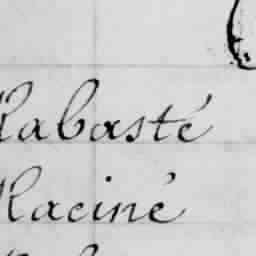 Rabasté
Raciné